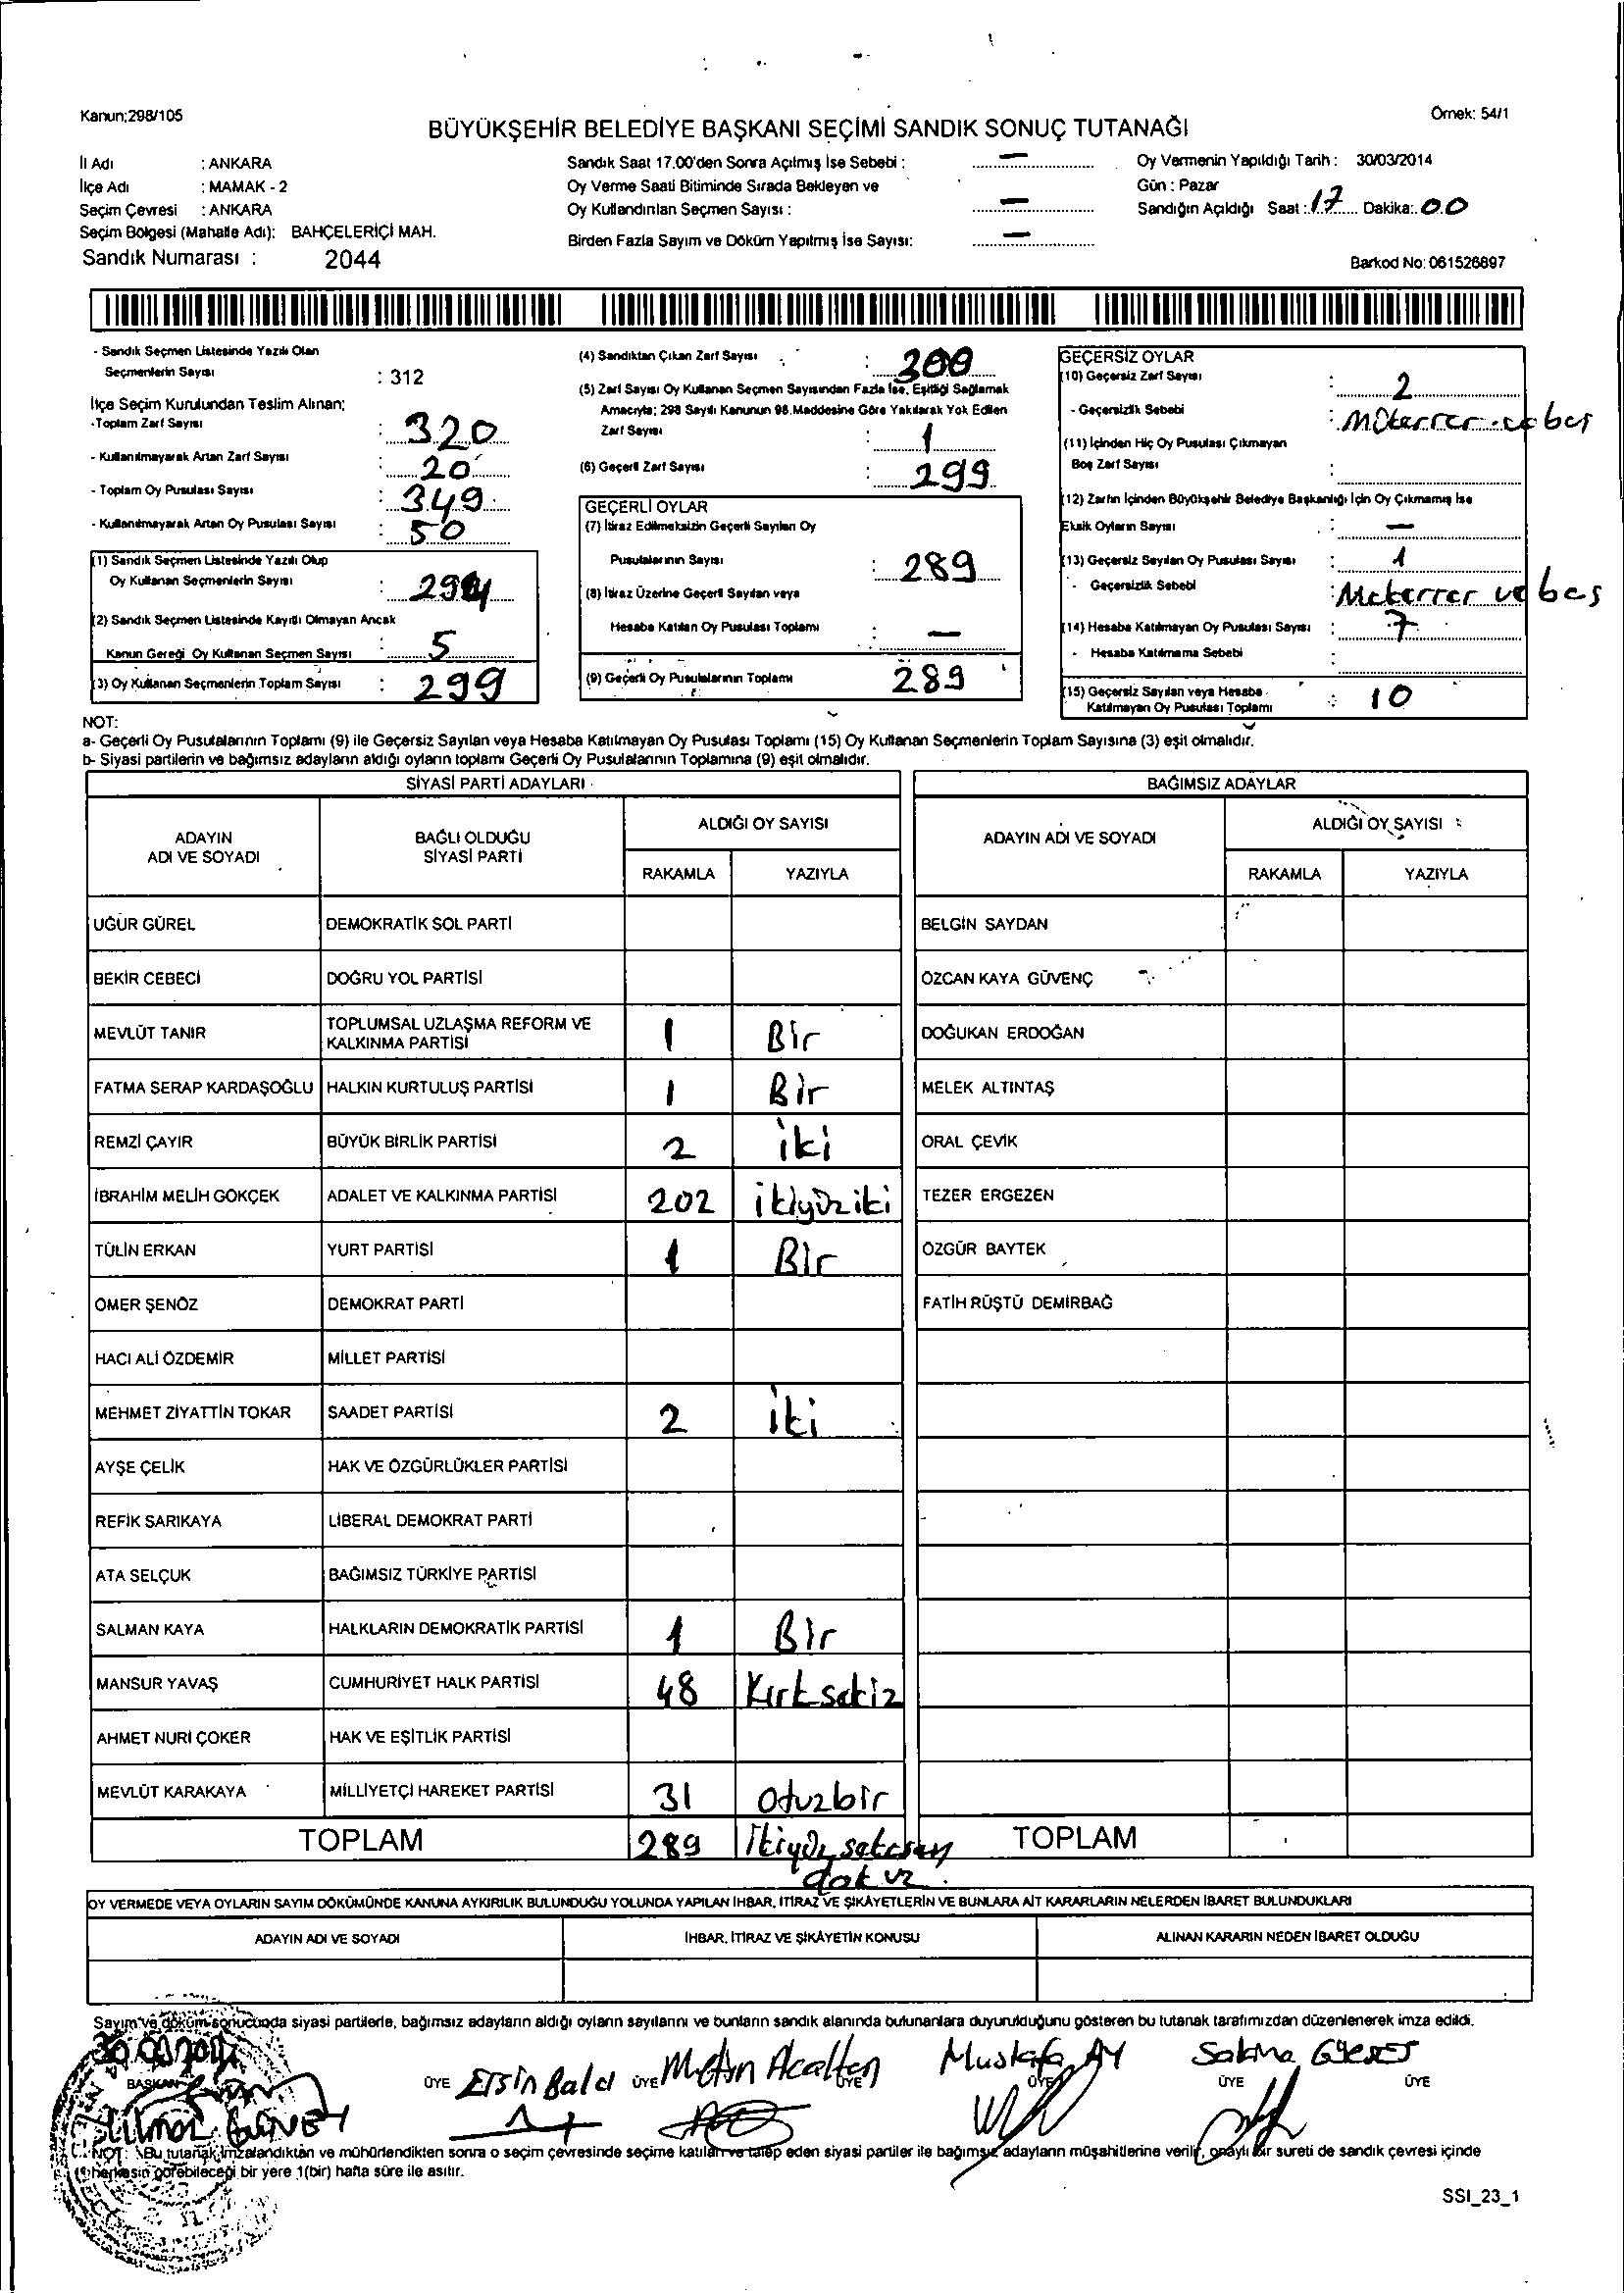 Kanun;298/105
Örnek: 54/1
BÜYÜKŞEHİR BELEDİYE BAŞKANI SEÇİMİ SANDIK SONUÇ TUTANAĞI
İl Adı : ANKARA
İlçe Adı : MAMAK - 2
Seçim Çevresi : ANKARA
Seçim Bölgesi (Mahalle Adı): BAHÇELERİÇİ MAH.
Sandık Numarası : 2044
Sandık Saat 17.00'den Sonra Açılmış İse Sebebi : —
Oy Verme Saati Bitiminde Sırada Bekleyen ve
Oy Kullandırılan Seçmen Sayısı : —
Birden Fazla Sayım ve Döküm Yapılmış İse Sayısı: —
Oy Vermenin Yapıldığı Tarih : 30/03/2014
Gün : Pazar
Sandığın Açıldığı Saat : 17 Dakika: 00
Barkod No: 061526897
- Sandık Seçmen Listesinde Yazılı Olan
Seçmenlerin Sayısı : 312
İlçe Seçim Kurulundan Teslim Alınan;
- Toplam Zarf Sayısı : 320
- Kullanılmayarak Artan Zarf Sayısı : 20
- Toplam Oy Pusulası Sayısı : 349
- Kullanılmayarak Artan Oy Pusulası Sayısı : 50
(1) Sandık Seçmen Listesinde Yazılı Olup
Oy Kullanan Seçmenlerin Sayısı : 294
(2) Sandık Seçmen Listesinde Kayıtlı Olmayan Ancak
Kanun Gereği Oy Kullanan Seçmen Sayısı : 5
(3) Oy Kullanan Seçmenlerin Toplam Sayısı : 299
(4) Sandıktan Çıkan Zarf Sayısı : 300
(5) Zarf Sayısı Oy Kullanan Seçmen Sayısından Fazla İse, Eşitliği Sağlamak
Amacıyla; 298 Sayılı Kanunun 98.Maddesine Göre Yakılarak Yok Edilen
Zarf Sayısı : 1
(6) Geçerli Zarf Sayısı : 299
GEÇERLİ OYLAR
(7) İtiraz Edilmeksizin Geçerli Sayılan Oy
Pusulalarının Sayısı : 289
(8) İtiraz Üzerine Geçerli Sayılan veya
Hesaba Katılan Oy Pusulası Toplamı : —
(9) Geçerli Oy Pusulalarının Toplamı 289
GEÇERSİZ OYLAR
(10) Geçersiz Zarf Sayısı : 2
- Geçersizlik Sebebi : Mükerrer ve boş
(11) İçinden Hiç Oy Pusulası Çıkmayan
Boş Zarf Sayısı :
(12) Zarfın İçinden Büyükşehir Belediye Başkanlığı İçin Oy Çıkmamış İse
Eksik Oyların Sayısı : —
(13) Geçersiz Sayılan Oy Pusulası Sayısı : 1
- Geçersizlik Sebebi : Mükerrer ve boş
(14) Hesaba Katılmayan Oy Pusulası Sayısı : 7
- Hesaba Katılmama Sebebi :
(15) Geçersiz Sayılan veya Hesaba
Katılmayan Oy Pusulası Toplamı : 10
NOT:
a- Geçerli Oy Pusulalarının Toplamı (9) ile Geçersiz Sayılan veya Hesaba Katılmayan Oy Pusulası Toplamı (15) Oy Kullanan Seçmenlerin Toplam Sayısına (3) eşit olmalıdır.
b- Siyasi partilerin ve bağımsız adayların aldığı oyların toplamı Geçerli Oy Pusulalarının Toplamına (9) eşit olmalıdır.
SİYASİ PARTİ ADAYLARI
ADAYIN ADI VE SOYADI BAĞLI OLDUĞU SİYASİ PARTİ ALDIĞI OY SAYISI
RAKAMLA YAZIYLA
UĞUR GÜREL DEMOKRATİK SOL PARTİ
BEKİR CEBECİ DOĞRU YOL PARTİSİ
MEVLÜT TANIR TOPLUMSAL UZLAŞMA REFORM VE KALKINMA PARTİSİ 1 Bir
FATMA SERAP KARDAŞOĞLU HALKIN KURTULUŞ PARTİSİ 1 Bir
REMZİ ÇAYIR BÜYÜK BİRLİK PARTİSİ 2 iki
İBRAHİM MELİH GÖKÇEK ADALET VE KALKINMA PARTİSİ 202 ikiyüziki
TÜLİN ERKAN YURT PARTİSİ 1 Bir
ÖMER ŞENÖZ DEMOKRAT PARTİ
HACI ALİ ÖZDEMİR MİLLET PARTİSİ
MEHMET ZİYATTİN TOKAR SAADET PARTİSİ 2 iki
AYŞE ÇELİK HAK VE ÖZGÜRLÜKLER PARTİSİ
REFİK SARIKAYA LİBERAL DEMOKRAT PARTİ
ATA SELÇUK BAĞIMSIZ TÜRKİYE PARTİSİ
SALMAN KAYA HALKLARIN DEMOKRATİK PARTİSİ 1 Bir
MANSUR YAVAŞ CUMHURİYET HALK PARTİSİ 48 Kırksekiz
AHMET NURİ ÇOKER HAK VE EŞİTLİK PARTİSİ
MEVLÜT KARAKAYA MİLLİYETÇİ HAREKET PARTİSİ 31 otuzbir
TOPLAM 289 İkiyüz seksen
dokuz
BAĞIMSIZ ADAYLAR
ADAYIN ADI VE SOYADI ALDIĞI OY SAYISI
RAKAMLA YAZIYLA
BELGİN SAYDAN
ÖZCAN KAYA GÜVENÇ
DOĞUKAN ERDOĞAN
MELEK ALTINTAŞ
ORAL ÇEVİK
TEZER ERGEZEN
ÖZGÜR BAYTEK
FATİH RÜŞTÜ DEMİRBAĞ
TOPLAM
OY VERMEDE VEYA OYLARIN SAYIM DÖKÜMÜNDE KANUNA AYKIRILIK BULUNDUĞU YOLUNDA YAPILAN İHBAR, İTİRAZ VE ŞİKÂYETLERİN VE BUNLARA AİT KARARLARIN NELERDEN İBARET BULUNDUKLARI
ADAYIN ADI VE SOYADI İHBAR, İTİRAZ VE ŞİKÂYETİN KONUSU ALINAN KARARIN NEDEN İBARET OLDUĞU
Sayım ve döküm sonucunda siyasi partilerle, bağımsız adayların aldığı oyların sayılarını ve bunların sandık alanında bulunanlara duyurulduğunu gösteren bu tutanak tarafımızdan düzenlenerek imza edildi.
BAŞKAN
ÜYE Ersin ÜYE Metin ÜYE Mustafa AY ÜYE ÜYE
NOT: Bu tutanak imzalandıktan ve mühürlendikten sonra o seçim çevresinde seçime katılan ve talep eden siyasi partiler ile bağımsız adayların müşahitlerine verilir, onaylı bir sureti de sandık çevresi içinde
herkesin görebileceği bir yere 1(bir) hafta süre ile asılır.
SSI_23_1